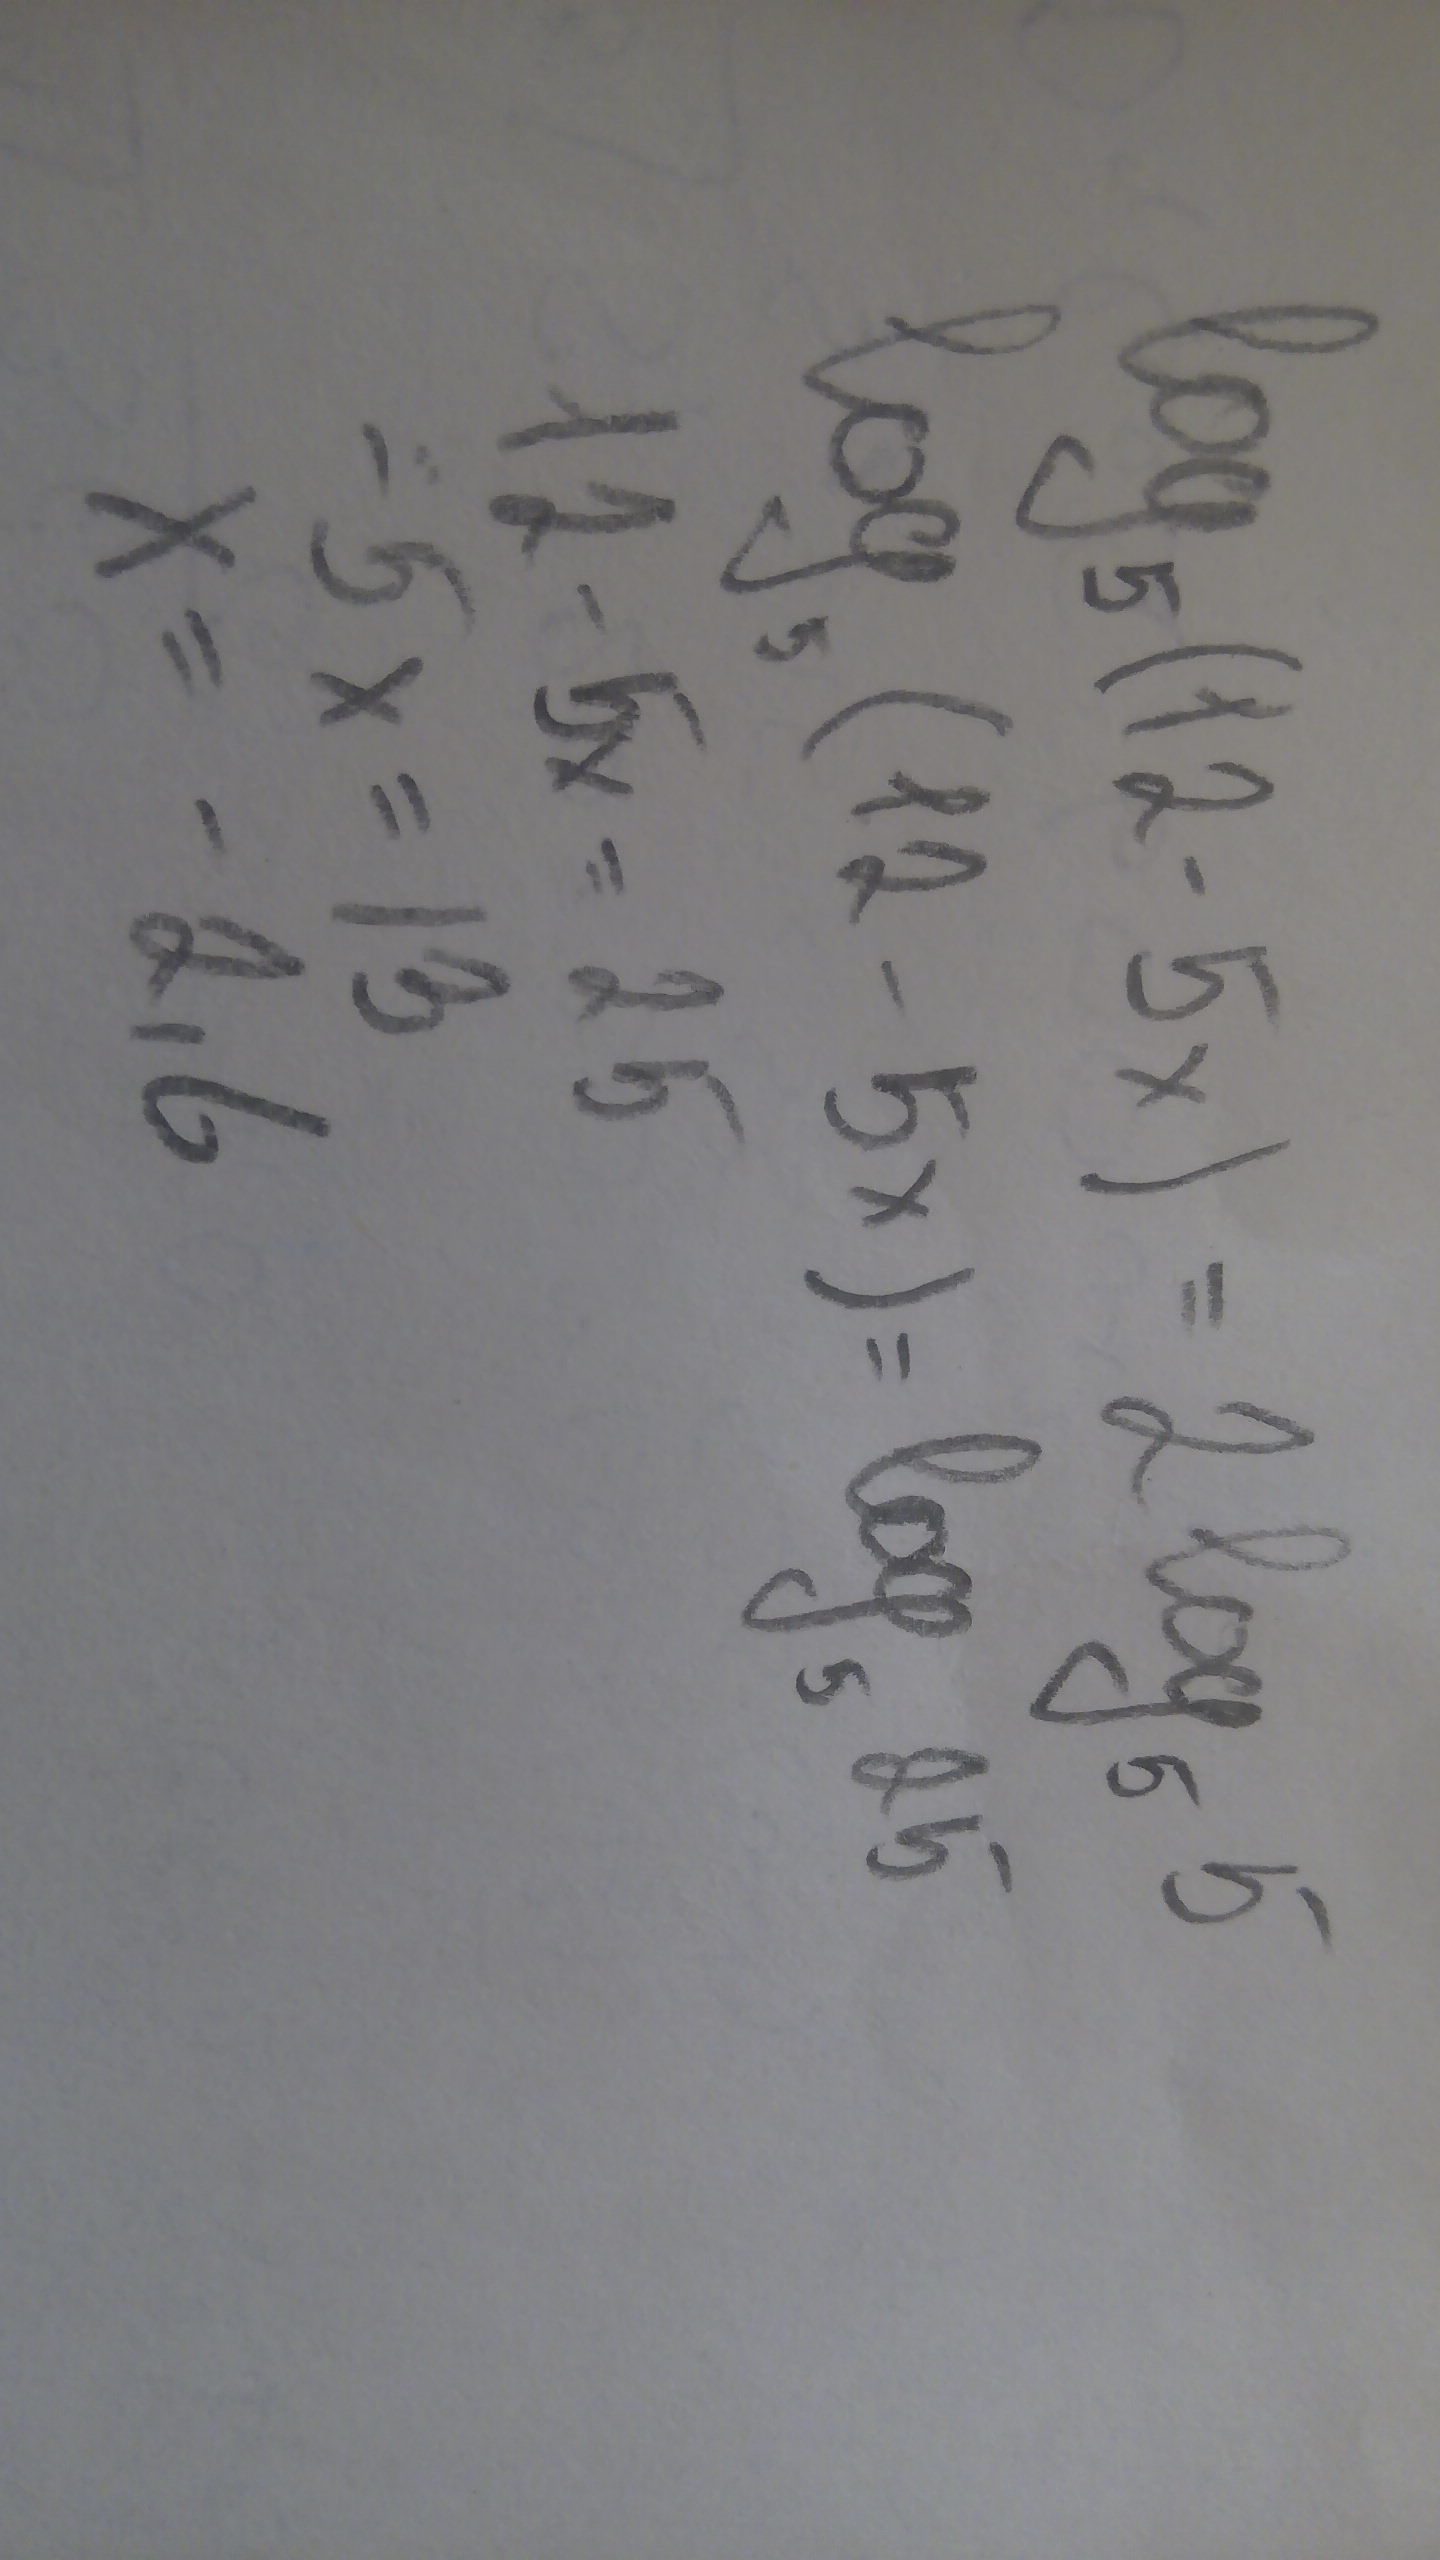 log₅(12-5x) = 2log₅5
log₅(12-5x) = log₅25
12-5x = 25
-5x = 13
x = -2,6